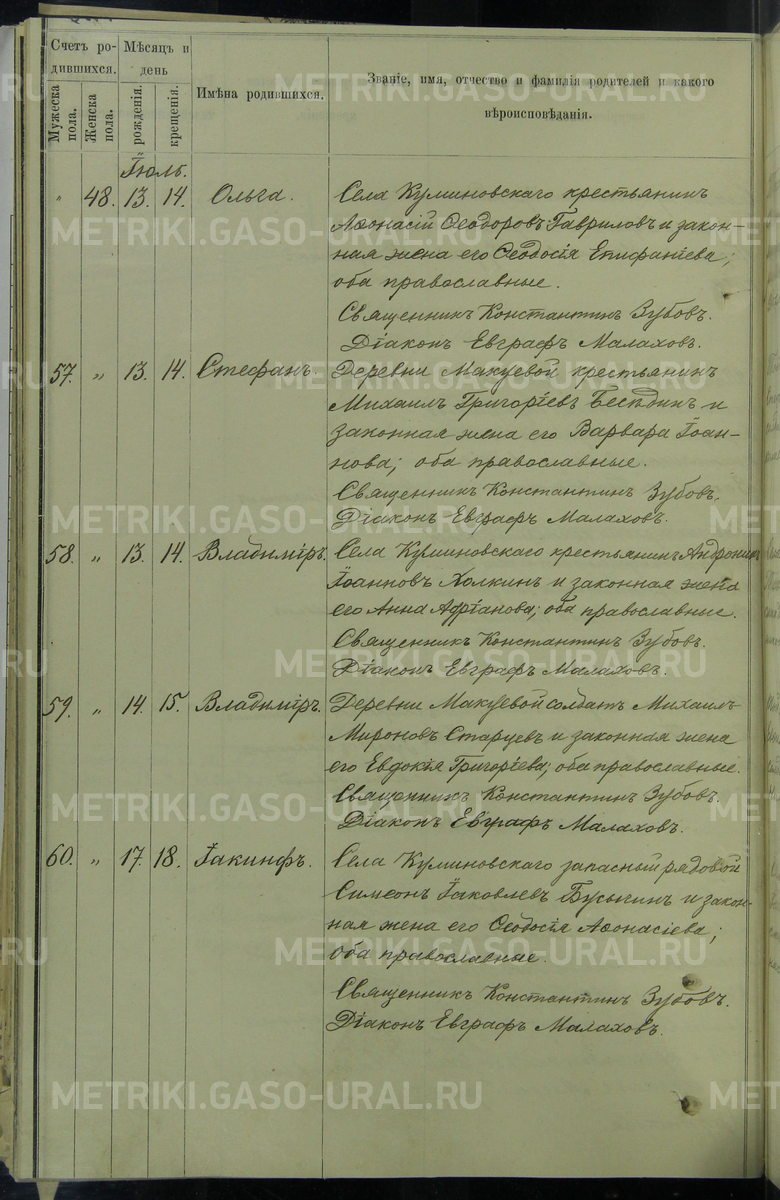 Счетъ ро-
дившихся.
Мѣсяцъ и
день
Мужеска
пола.
Женска
пола.
рожденія.
крещенія.
Имѣна родившихся.
Званіе, имя, отчество и фамилія родителей и какого
вѣроисповѣданія.
Іюль.
„ 48. 13. 14. Ольга. Села Куминовскаго крестьянинъ
Аѳонасій Ѳеодоровъ Гавриловъ и закон-
ная жена его Ѳеодосія Епифаніева;
оба православные.
Священникъ Константинъ Зубовъ.
Діаконъ Евграфъ Малаховъ.
57. „ 13. 14. Стефанъ. Деревни Макуевой крестьянинъ
Михаилъ Григоріевъ и
законная жена его Варвара Іоан-
нова; оба православные.
Священникъ Константинъ Зубовъ.
Діаконъ Евграфъ Малаховъ.
58. „ 13. 14. Владиміръ. Села Куминовскаго крестьянинъ Андроникъ
Іоанновъ Холкинъ и законная жена
его Анна Адріанова; оба православные.
Священникъ Константинъ Зубовъ.
Діаконъ Евграфъ Малаховъ.
59. „ 14. 15. Владиміръ. Деревни Макуевой солдатъ Михаилъ
Мироновъ Старцевъ и законная жена
его Евдокія Григоріева; оба православные.
Священникъ Константинъ Зубовъ.
Діаконъ Евграфъ Малаховъ.
60. „ 17. 18. Іакинфъ. Села Куминовскаго запасный рядовой
Симеонъ Іаковлевъ Бусыгинъ и закон-
ная жена его Ѳеодосія Аѳонасіева;
оба православные.
Священникъ Константинъ Зубовъ.
Діаконъ Евграфъ Малаховъ.
METRIKI.GASO-URAL.RU